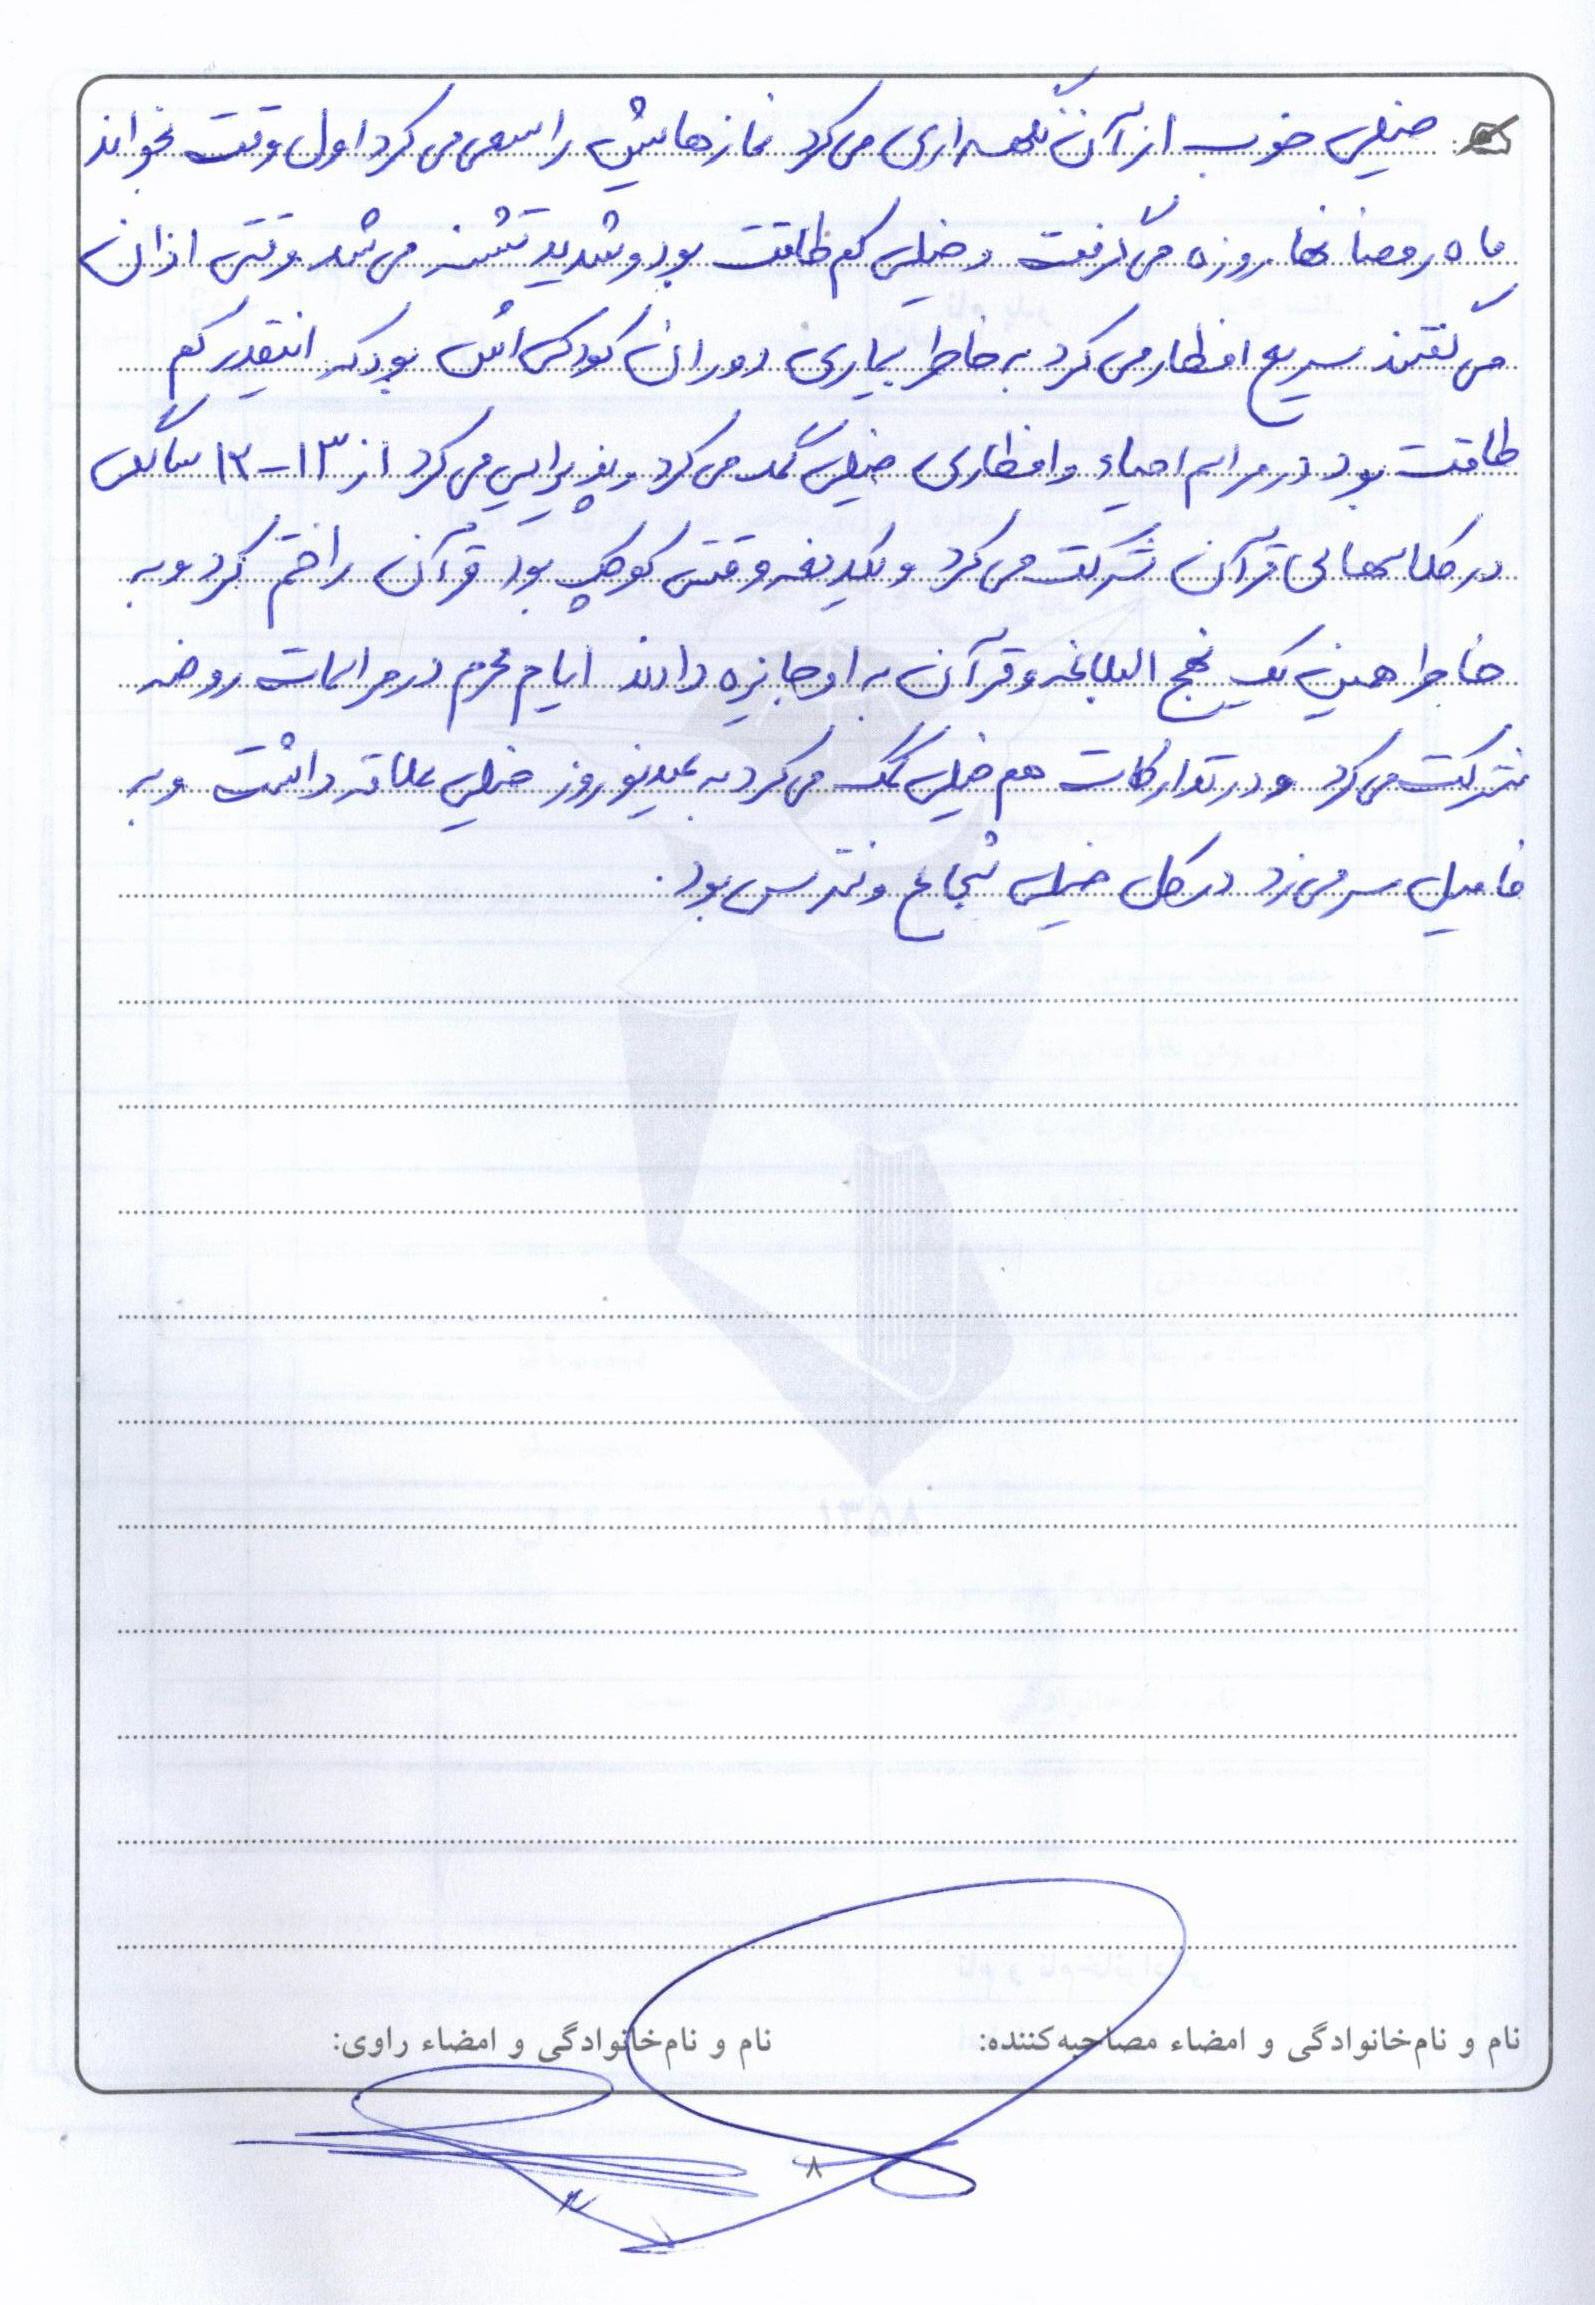 خیلی خوب از آن نگهداری می‌کرد نمازهایش را سعی می‌کرد اول وقت بخواند
ماه رمضانها روزه می‌گرفت و خیلی کم طاقت بود و شدید تشنه می‌شد وقتی اذان
می‌گفتند سریع افطار می‌کرد به خاطر بیماری دوران کودکی‌اش بود که اینقدر کم
طاقت بود در مراسم احیاء و افطاری خیلی کمک می‌کرد و پذیرایی می‌کرد از ۱۳-۱۲ سالگی
در کلاسهای قرآن شرکت می‌کرد و یکدفعه وقتی کوچک بود قرآن را ختم کرد و به
خاطر همین یک نهج البلاغه و قرآن به او جایزه دادند ایام محرم در مراسمات روضه
شرکت می‌کرد و در تدارکات هم خیلی کمک می‌کرد به عید نوروز خیلی علاقه داشت و به
فامیل سر می‌زد در کل خیلی شجاع و نترس بود.
نام و نام‌خانوادگی و امضاء مصاحبه‌کننده: نام و نام‌خانوادگی و امضاء راوی:
۸